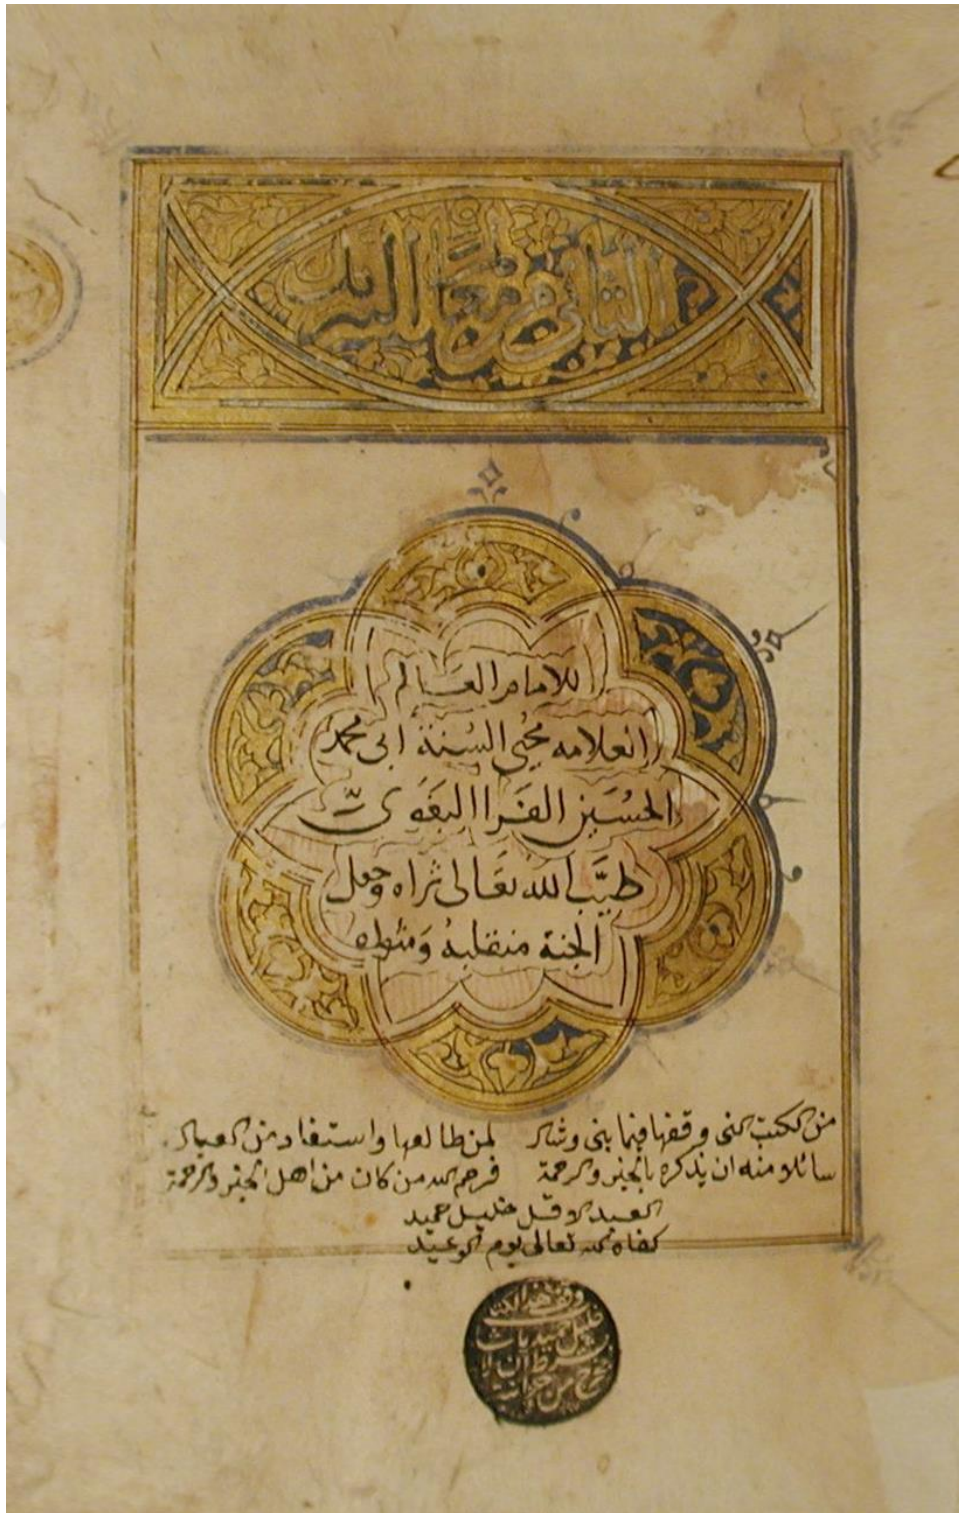 الثانى من معالم التنزيل
للامام العالم
العلامه محيى السنة ابى محمد
الحسين الفرا البغوى
طيَّب الله تعالى ثراه وجعل
الجنة منقلبه ومثواه
من الكتب التى وقفها فيما بنى وشاد لمن طالعها واستفاد من العباد
سائلا منه ان يذكره بالخير والرحمة فرحم الله من كان من اهل الخير والرحمة
العبد الاقل خليل حميد
كفاه الله تعالى يوم الوعيد
وقف هذا الكتاب
خليل حميد پاشا
بشرط ان لا
يخرج من خزانته